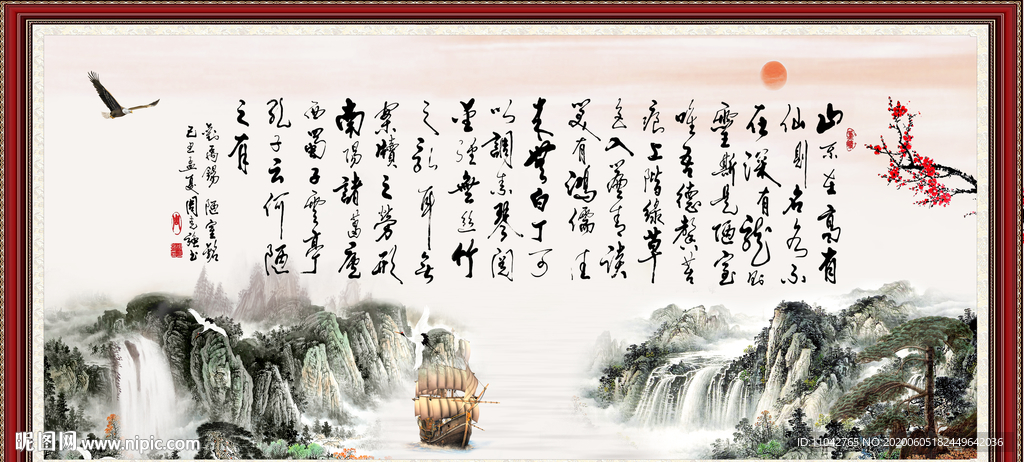 山不在高有
仙則名水不
在深有龍則
靈斯是陋室
唯吾德馨苔
痕上階綠草
色入簾青談
笑有鴻儒往
来無白丁可
以調素琴閱
金經無絲竹
之亂耳無
案牘之勞形
南陽諸葛廬
西蜀子雲亭
孔子云何陋
之有
劉禹錫 陋室銘
孟夏周書
昵图网 www.nipic.com
ID:11042765 NO:20200605182449642036